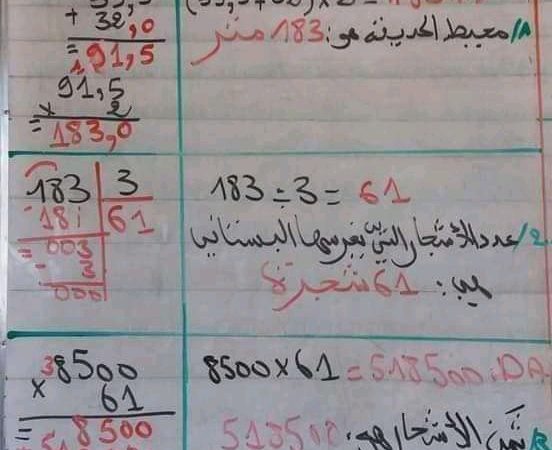 + 32,0
= 91,5
91,5
× 2
= 183,0
1/ محيط الحديقة هو: 183 متر
183 3
- 18 61
= 003
- 3
000
183 ÷ 3 = 61
2/ عدد الأشجار التي يغرسها البستاني
هي: 61 شجرة
8500
× 61
= 8500
8500 × 61 = 518500 DA
3/ ثمن الأشجار هو: 518500